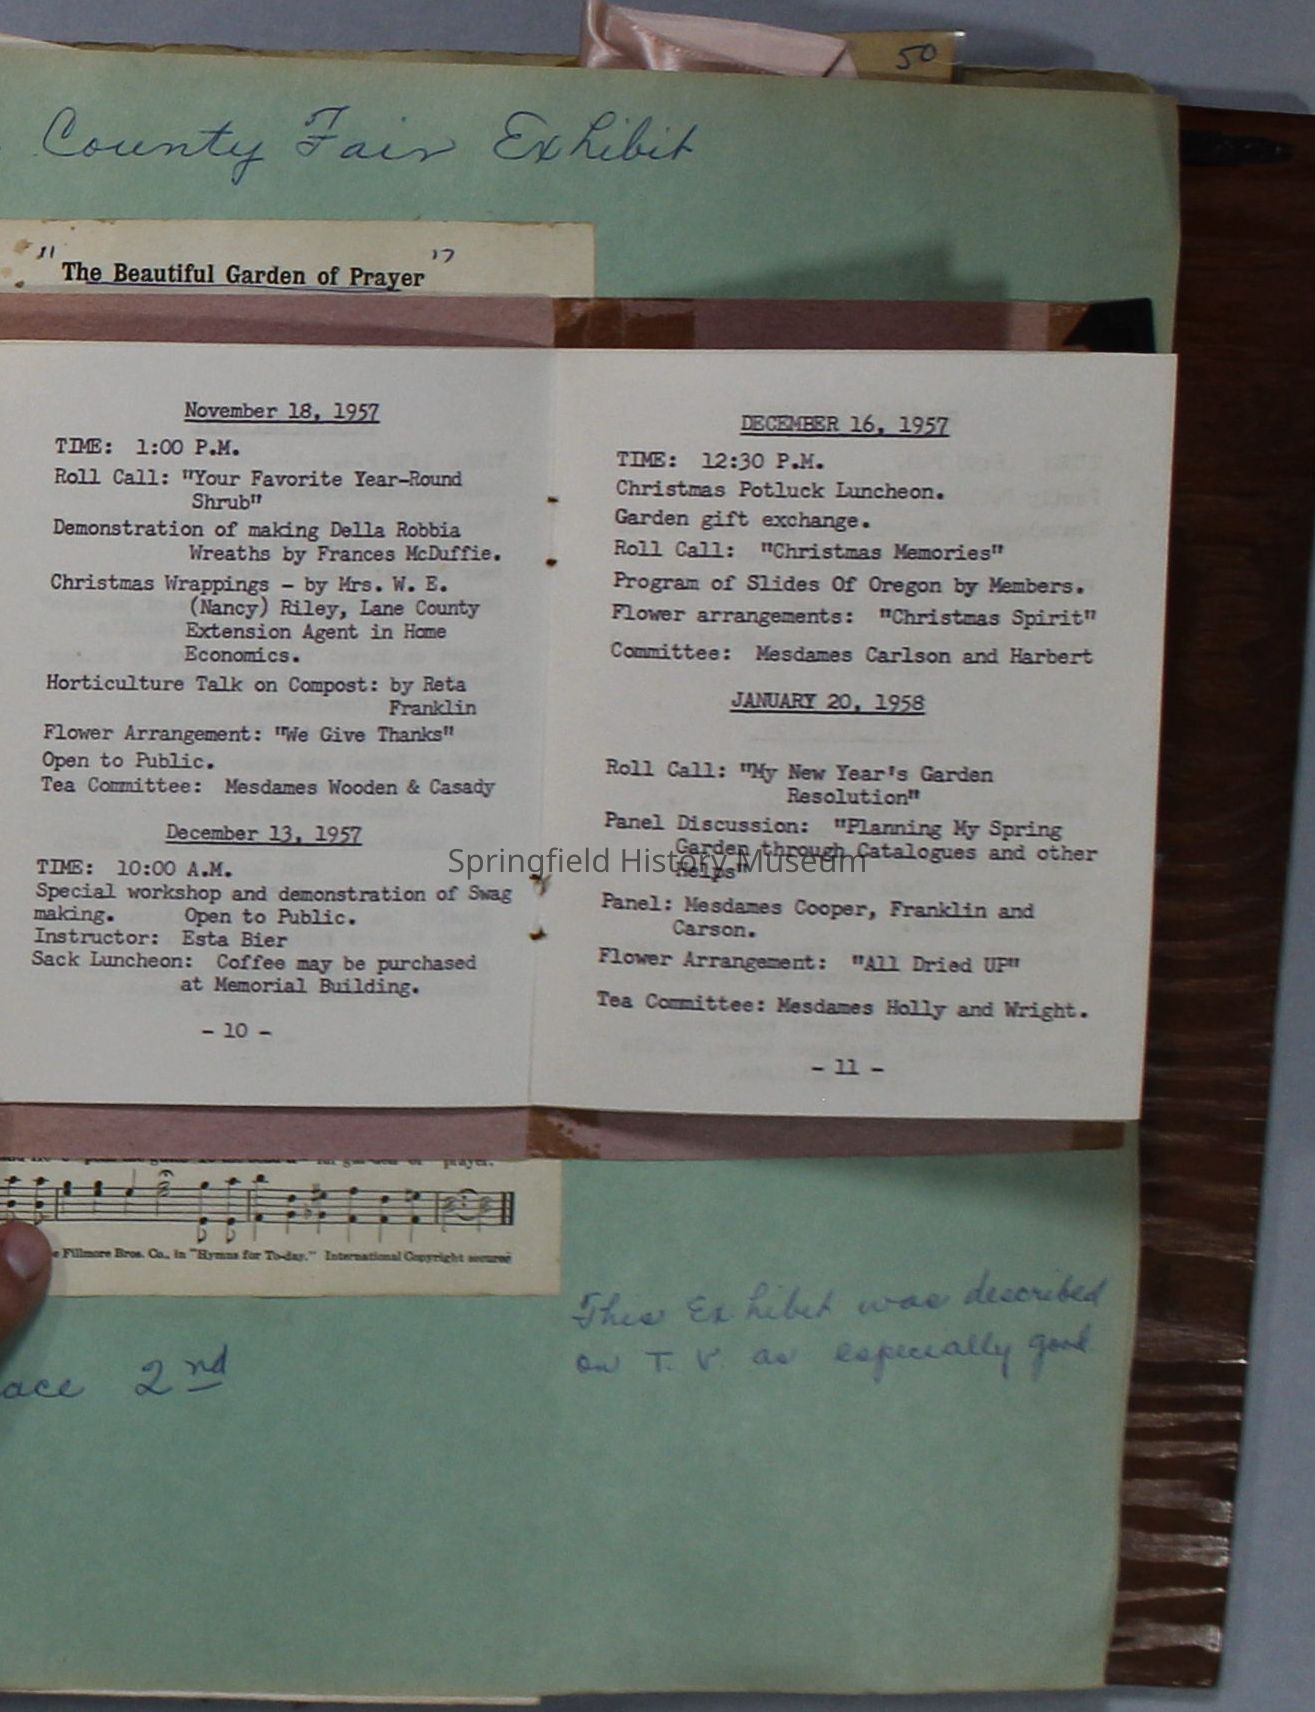 50
County Fair Exhibit
"The Beautiful Garden of Prayer"
November 18, 1957
TIME: 1:00 P.M.
Roll Call: "Your Favorite Year-Round
Shrub"
Demonstration of making Della Robbia
Wreaths by Frances McDuffie.
Christmas Wrappings - by Mrs. W. E.
(Nancy) Riley, Lane County
Extension Agent in Home
Economics.
Horticulture Talk on Compost: by Reta
Franklin
Flower Arrangement: "We Give Thanks"
Open to Public.
Tea Committee: Mesdames Wooden & Casady
December 13, 1957
TIME: 10:00 A.M.
Special workshop and demonstration of Swag
making. Open to Public.
Instructor: Esta Bier
Sack Luncheon: Coffee may be purchased
at Memorial Building.
- 10 -
DECEMBER 16, 1957
TIME: 12:30 P.M.
Christmas Potluck Luncheon.
Garden gift exchange.
Roll Call: "Christmas Memories"
Program of Slides Of Oregon by Members.
Flower arrangements: "Christmas Spirit"
Committee: Mesdames Carlson and Harbert
JANUARY 20, 1958
Roll Call: "My New Year's Garden
Resolution"
Panel Discussion: "Planning My Spring
Garden through Catalogues and other
Helps"
Panel: Mesdames Cooper, Franklin and
Carson.
Flower Arrangement: "All Dried UP"
Tea Committee: Mesdames Holly and Wright.
- 11 -
Springfield History Museum
prayer.
Fillmore Bros. Co., in "Hymns for To-day." International Copyright secured
This Exhibit was described
on T. V. as especially good
ace 2nd